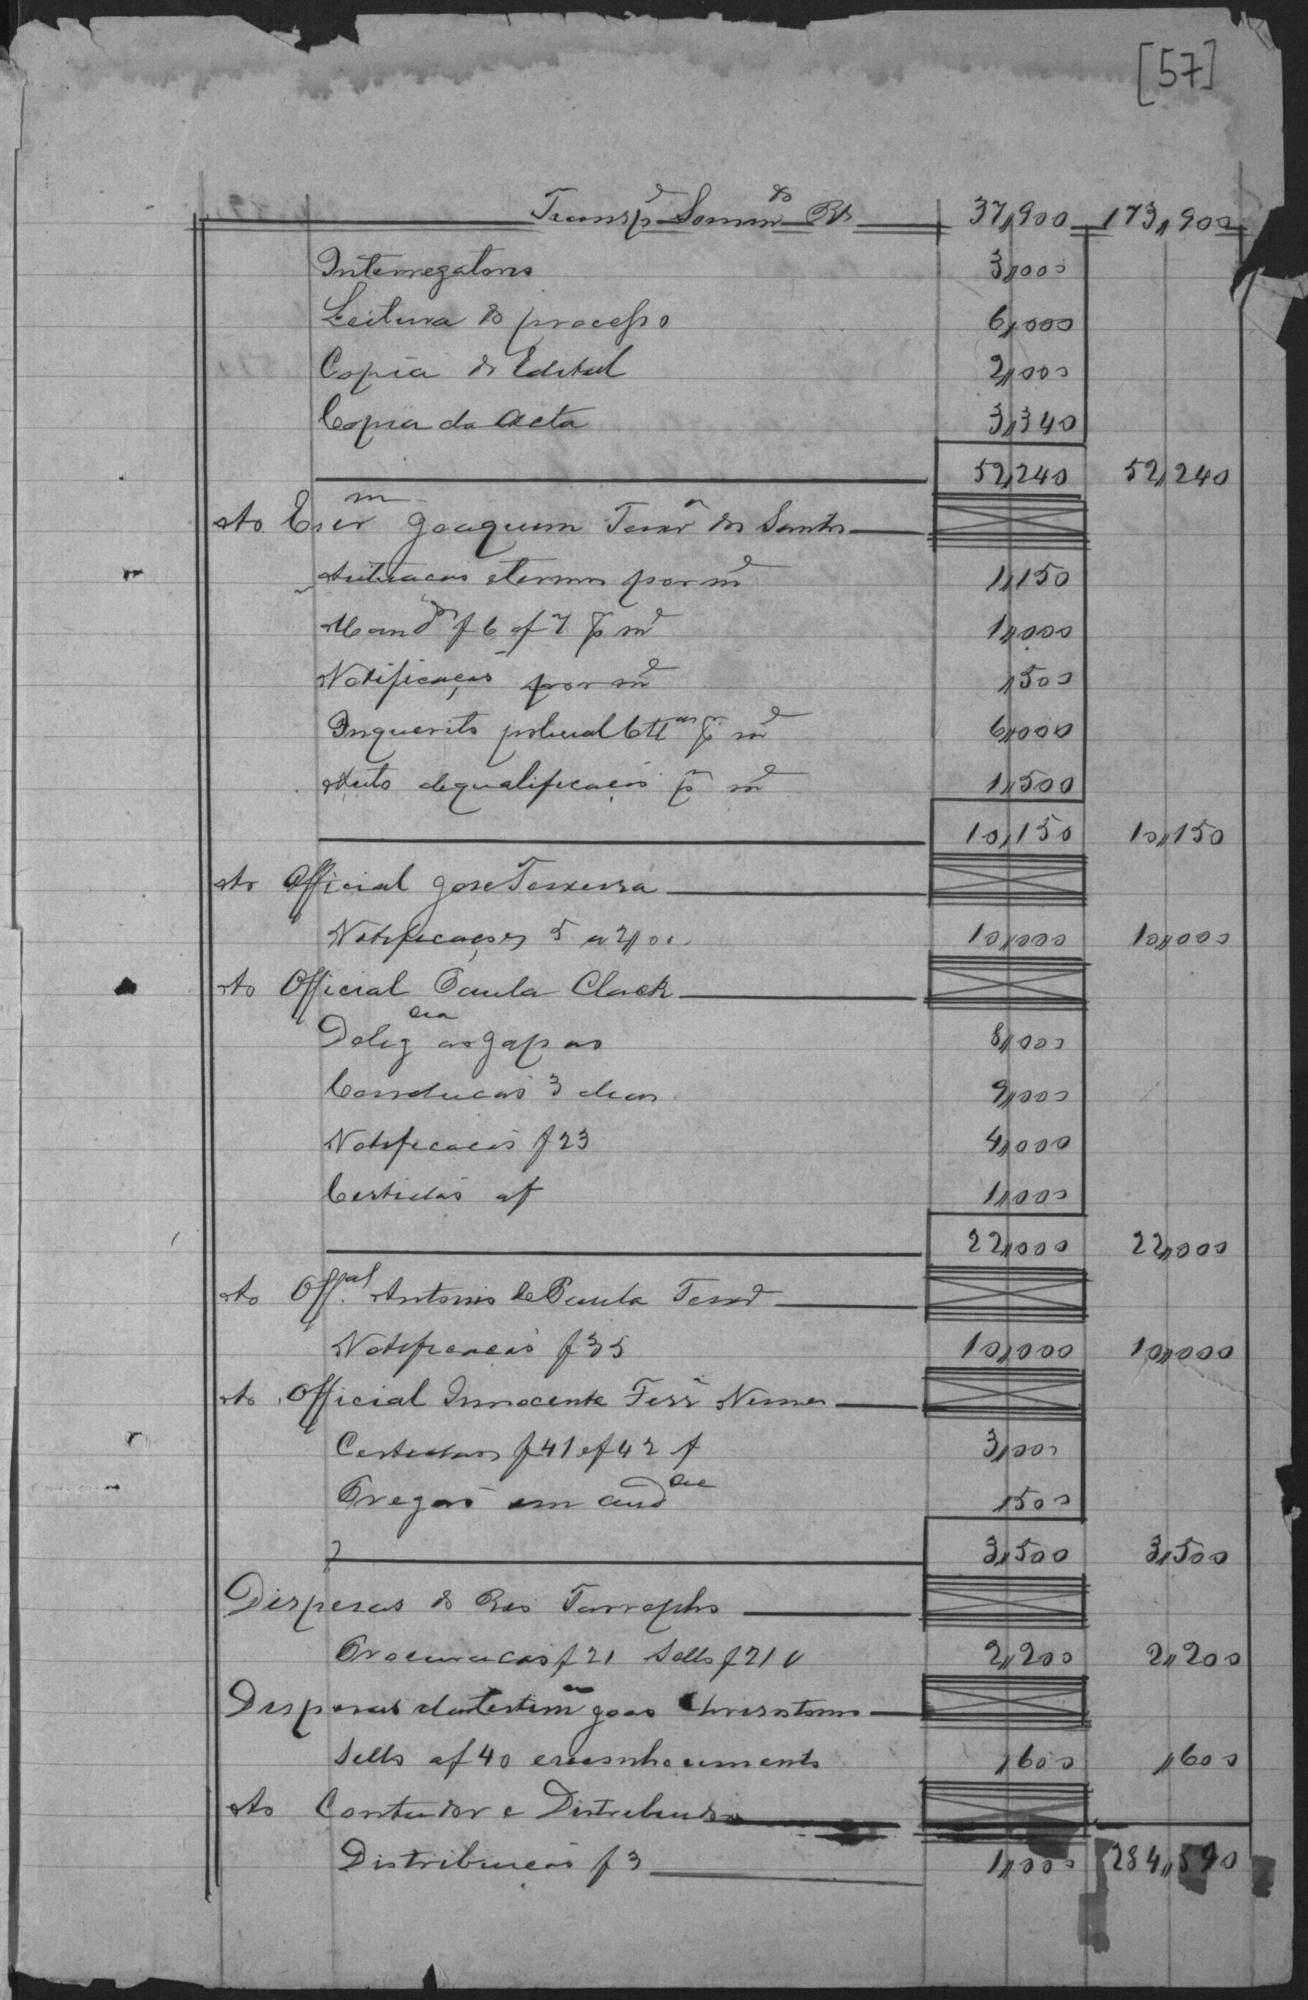 [57]
Transp.e Somm do Rs 37,900 173,900
Interrogatorio 3,000
Leitura do processo 6,000
Copia do Edital 2,000
Copia da Acta 3,340
52,240 52,240
Ao Escrm Joaquim Teixrª dos Santos
Autuacao e termos por md 1,150
Mand f 6 e f 7 p md 1,000
Notificação por md ,500
Inquerito policial 6 ttas p md 6,000
Auto de qualificação p md 1,500
10,150 10,150
Ao Official José Teixeira
Notificações 5 a 2,000 10,000 10,000
Ao Official Paula Clack
Delig cia 8,000
Conducao 3 dias 9,000
Notificacão f 23 4,000
Certidão af 1,000
22,000 22,000
Ao Offal Antonio de Paula
Notificacão f 35 10,000 10,000
Ao Official Innocente Ferrª Nunes
Certidões f 41 e f 42 3,000
Pregão em audcia ,500
3,500 3,500
Dispesas do Reo
Procuracão f 21 Sello f 21 v 2,200 2,200
Dispesas da testema João Chrisostomo
Sello af 40 e reconhecimento ,600 ,600
Ao Contador e Distribuidor
Distribuicão f 3 1,000 284,590